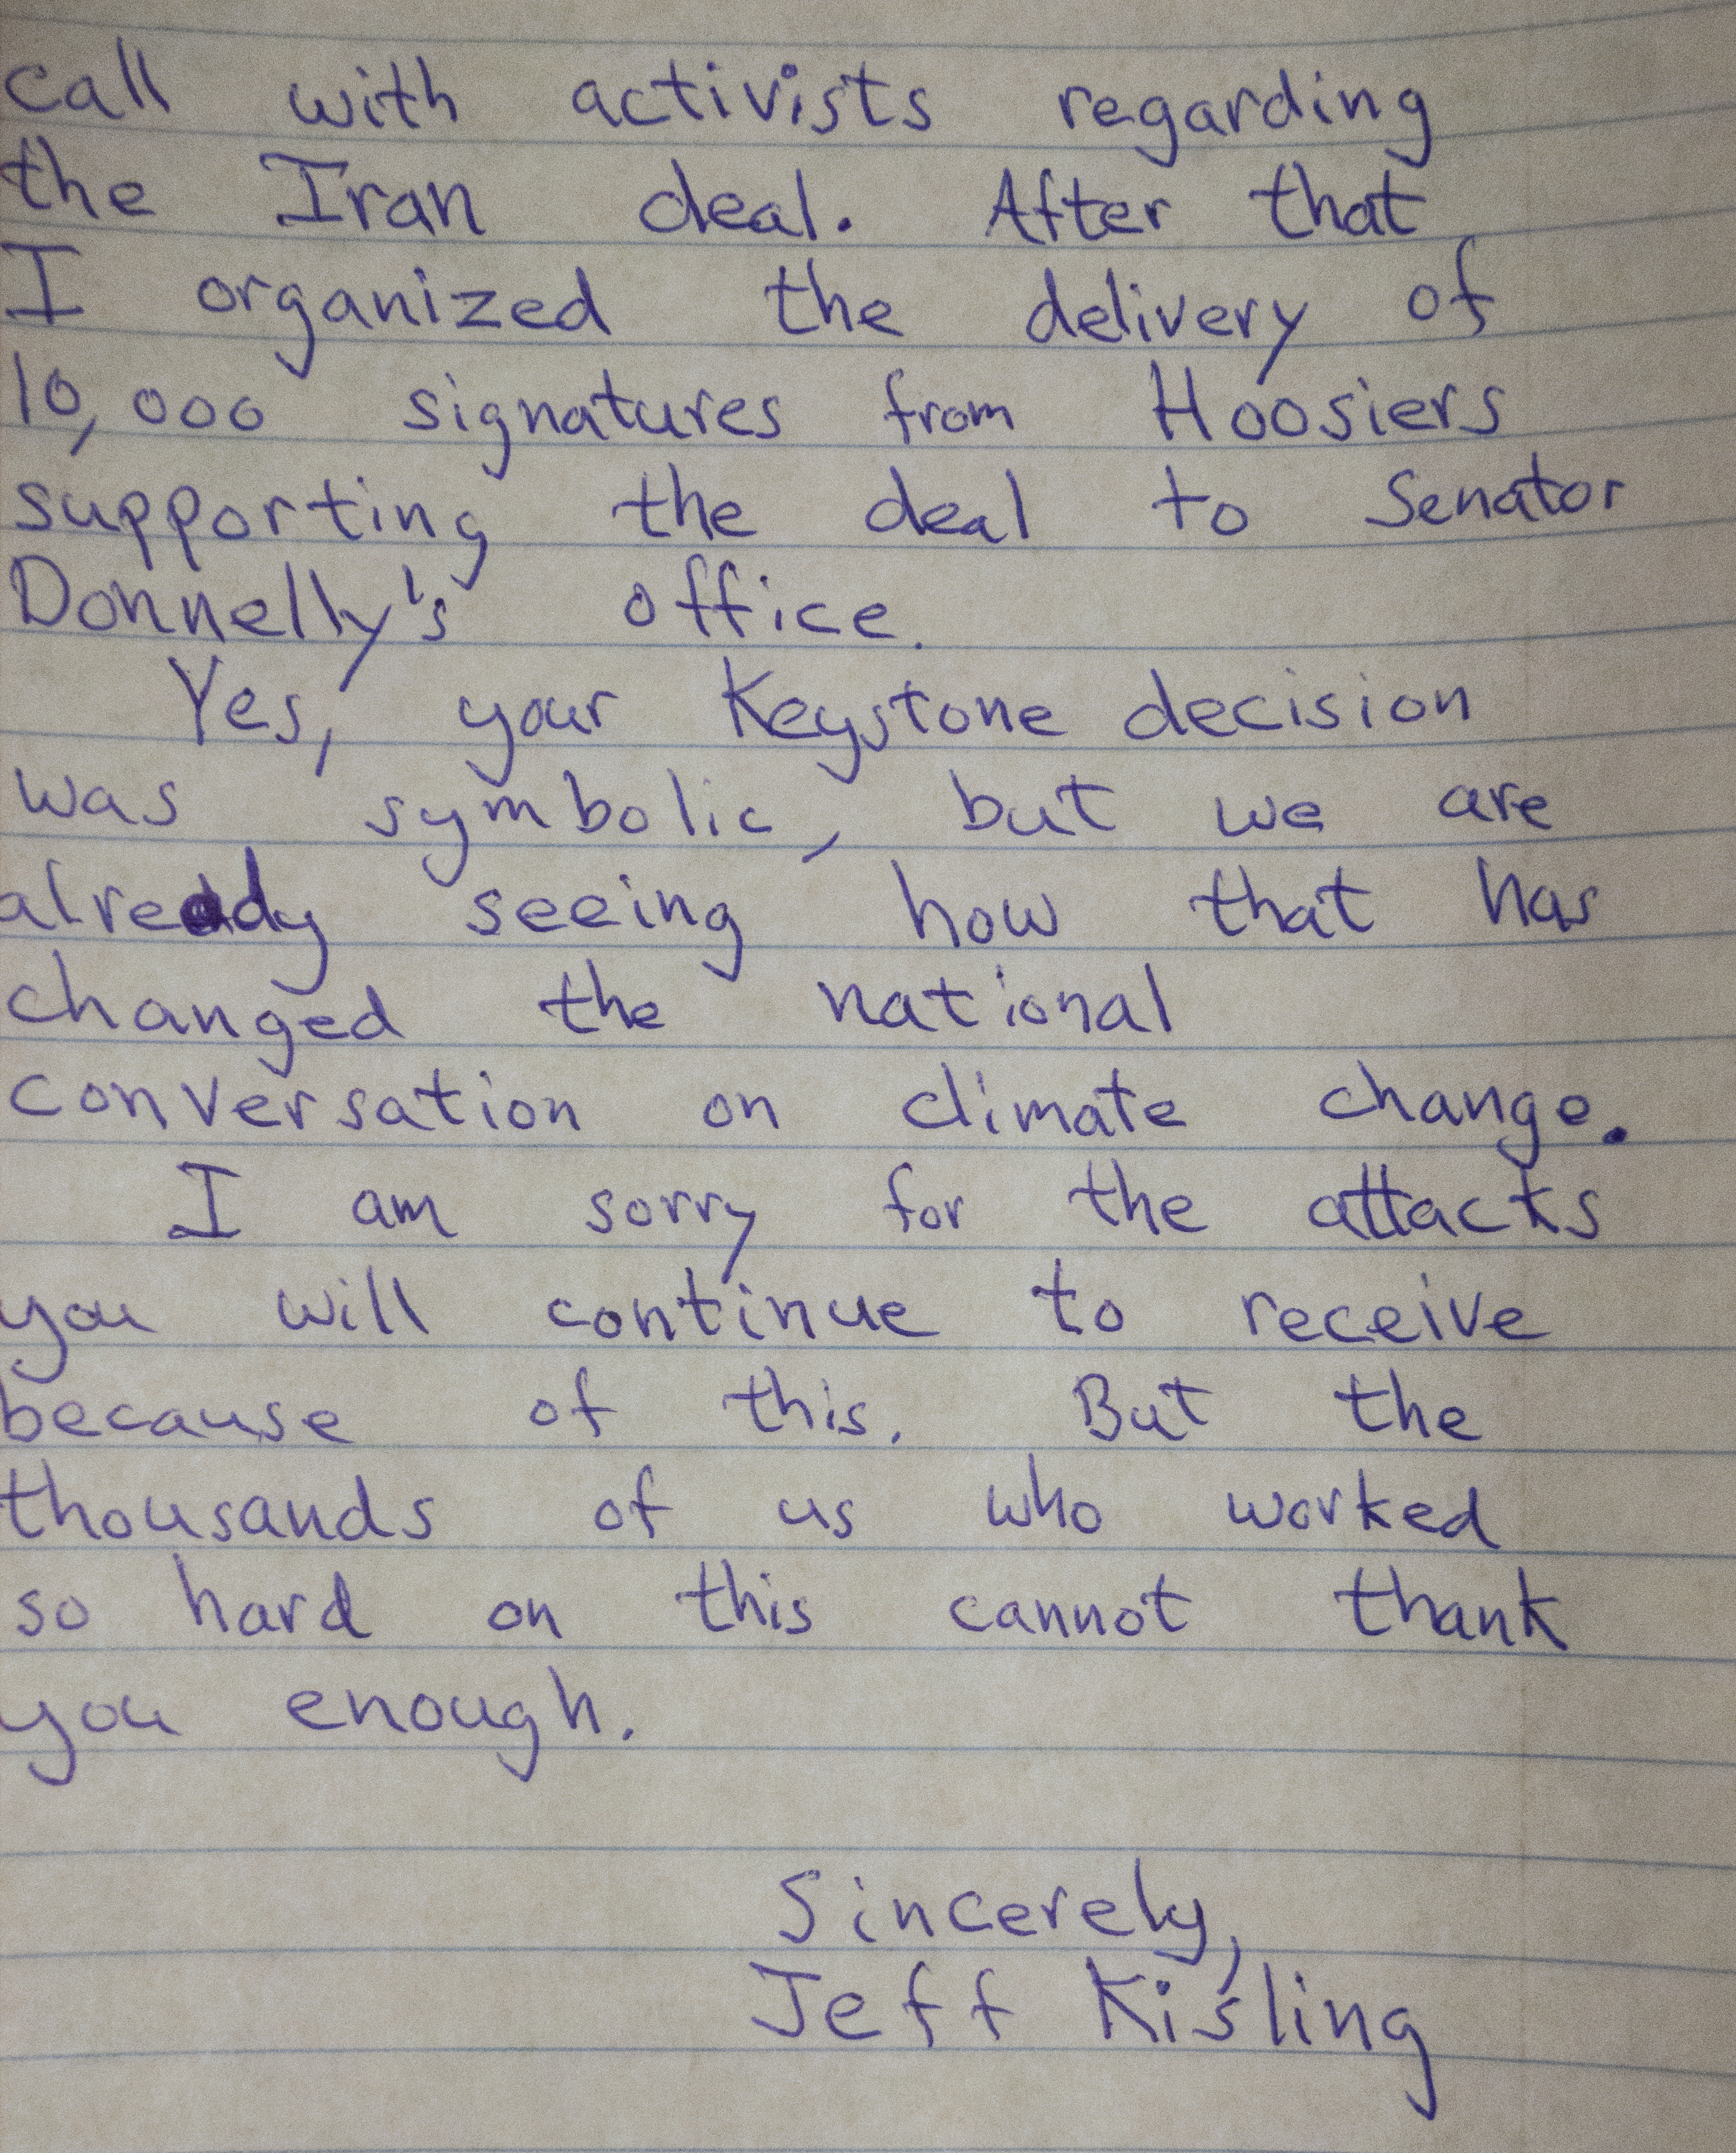 call with activists regarding
the Iran deal. After that
I organized the delivery of
10,000 signatures from Hoosiers
supporting the deal to Senator
Donnelly's office.
Yes, your Keystone decision
was symbolic, but we are
already seeing how that has
changed the national
conversation on climate change.
I am sorry for the attacks
you will continue to receive
because of this. But the
thousands of us who worked
so hard on this cannot thank
you enough.
Sincerely,
Jeff Kisling